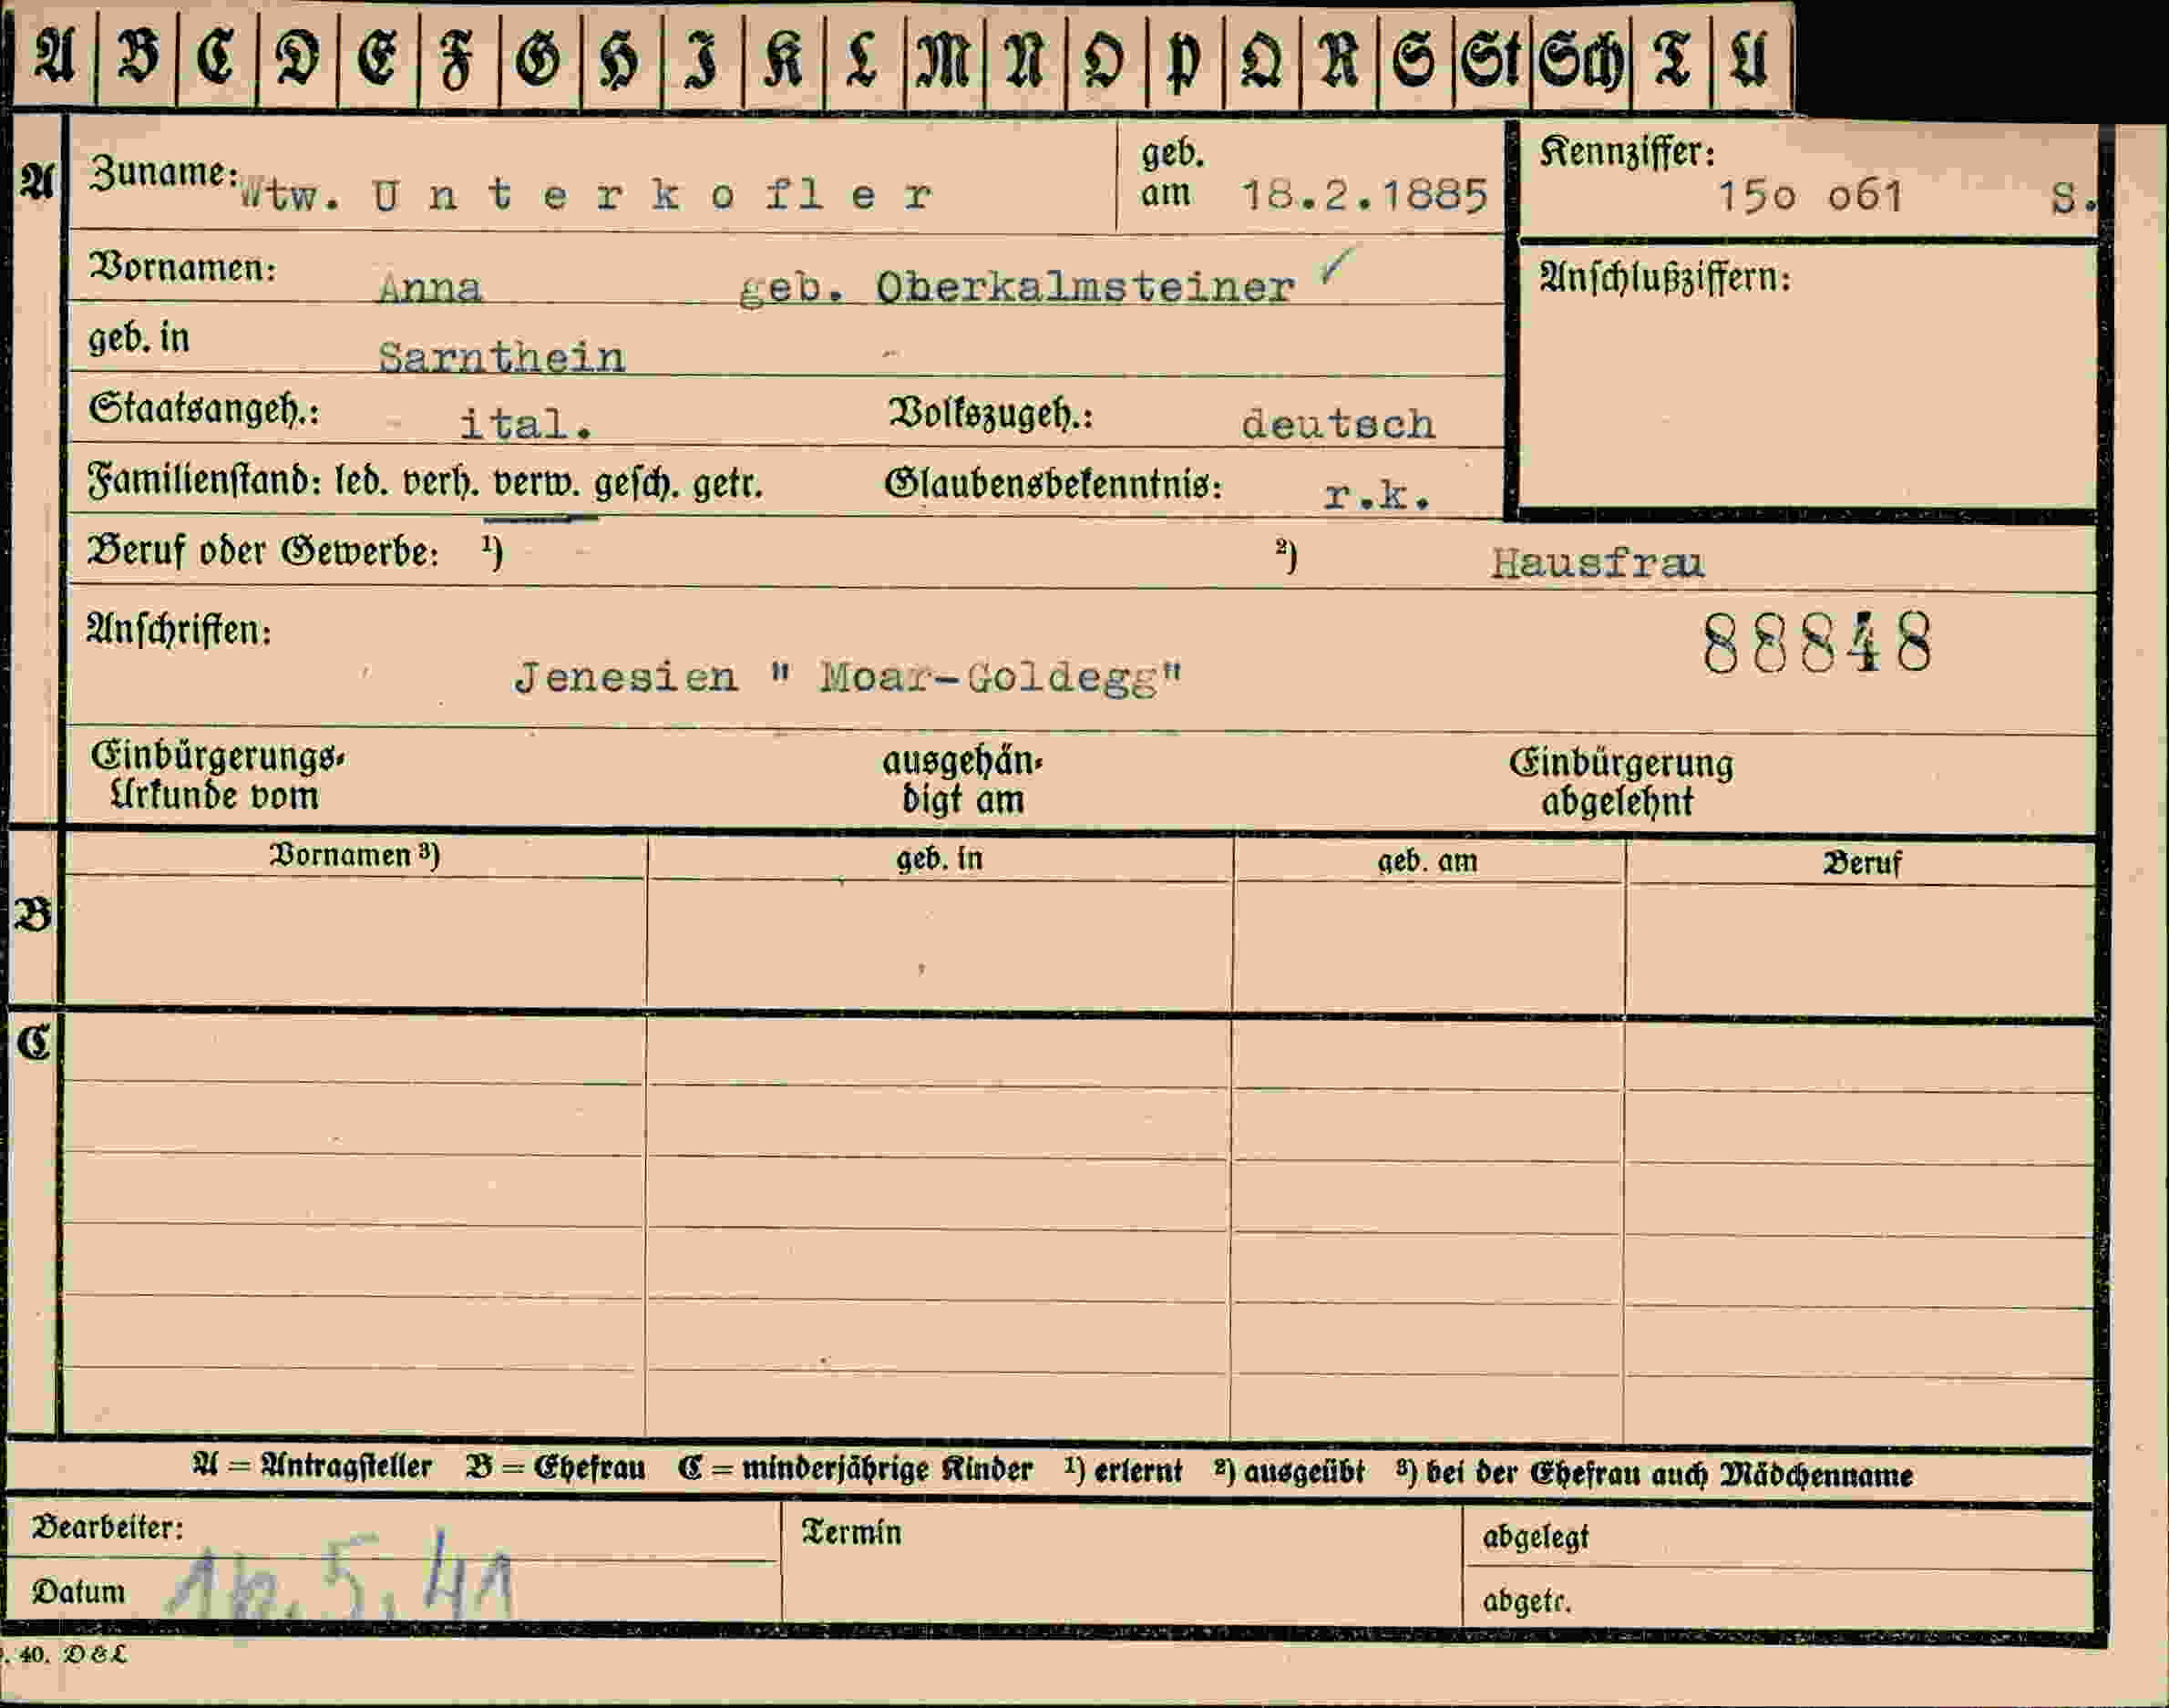 A B C D E F G H I K L M N O P Q R S St Sch T U
A Zuname: Wtw. U n t e r k o f l e r geb. am 18.2.1885 Kennziffer: 15o o61 S.
Vornamen: Anna geb. Oberkalmsteiner ✓ Anschlußziffern:
geb. in Sarnthein
Staatsangeh.: ital. Volkszugeh.: deutsch
Familienstand: led. verh. verw. gesch. getr. Glaubensbekenntnis: r.k.
Beruf oder Gewerbe: ¹) ²) Hausfrau
Anschriften: 88848
Jenesien " Moar-Goldegg"
Einbürgerungs- ausgehän- Einbürgerung
Urkunde vom digt am abgelehnt
Vornamen ³) geb. in geb. am Beruf
B
C
A = Antragsteller B = Ehefrau C = minderjährige Kinder ¹) erlernt ²) ausgeübt ³) bei der Ehefrau auch Mädchenname
Bearbeiter: Termin abgelegt
Datum 5.41 abgetr.
. 40. D & L